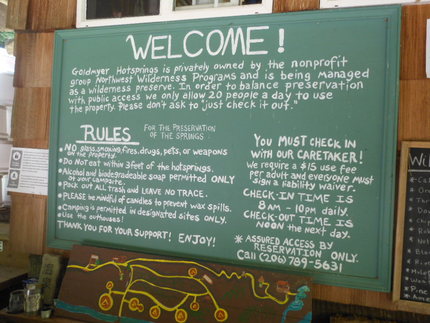 WELCOME!
Goldmyer Hotsprings is privately owned by the nonprofit
group Northwest Wilderness Programs and is being managed
as a wilderness preserve. In order to balance preservation
with public access we only allow 20 people a day to use
the property. Please don't ask to "just check it out."
RULES
FOR THE PRESERVATION
OF THE SPRINGS
• NO glass, smoking, fires, drugs, pets, or weapons
on the property.
• Do Not eat within 3 feet of the hotsprings.
• Alcohol and biodegradable soap permitted ONLY
at your campsite.
• Pack out ALL trash and LEAVE NO TRACE.
• PLEASE be mindful of candles to prevent wax spills.
• Camping is permitted in designated sites ONLY.
• Use the outhouses!
THANK YOU FOR YOUR SUPPORT! ENJOY!
YOU MUST CHECK IN
WITH OUR CARETAKER!
We require a $15 use fee
per adult and everyone must
sign a liability waiver.
CHECK-IN TIME IS
8AM - 10PM daily.
CHECK-OUT TIME IS
NOON the next day.
* ASSURED ACCESS BY
RESERVATION ONLY.
Call (206) 789-5631